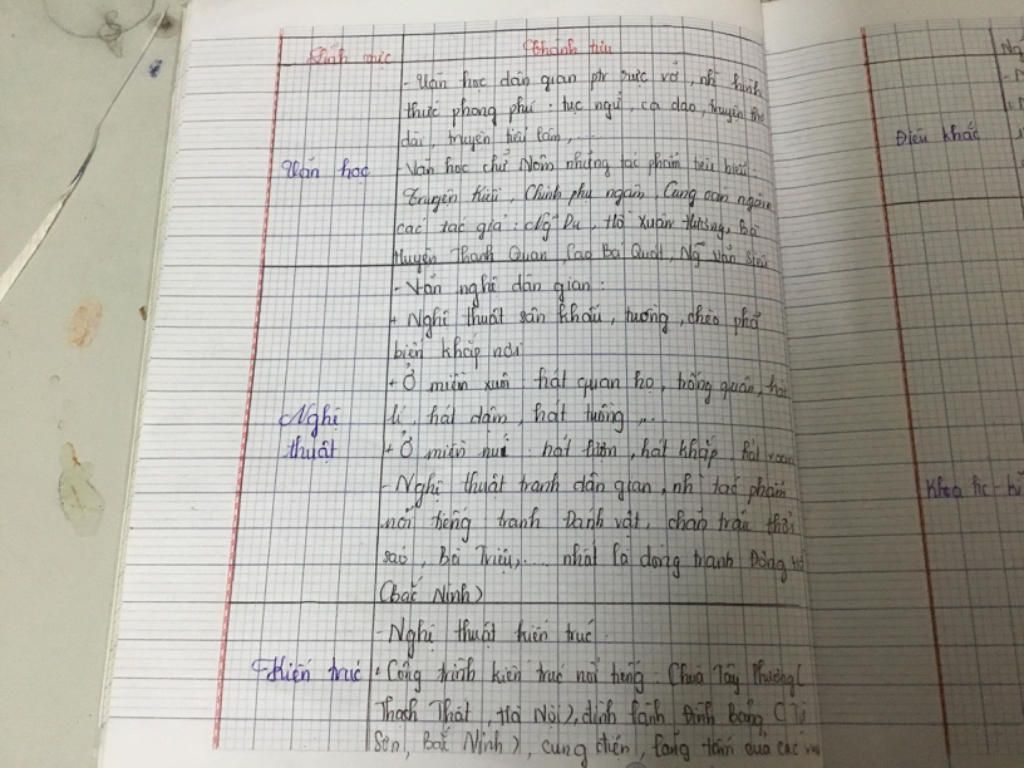 Lĩnh vực
Thành tựu
- Văn học dân gian ptr rực rỡ, nh hình
thức phong phú: tục ngữ, ca dao, truyện thơ
dài, truyện tiếu lâm,...
Văn học
- Văn học chữ Nôm những tác phẩm tiêu biểu:
Truyện Kiều, Chinh phụ ngâm, Cung oán ngâm
các tác giả: Ng Du, Hồ Xuân Hương, Bà
Huyện Thanh Quan, Cao Bá Quát, Ng Văn Siêu
- Văn nghệ dân gian:
+ Nghệ thuật sân khấu, tuồng, chèo phổ
biến khắp nơi
+ Ở miền xuôi hát quan họ, trống quân, hát
lí, hát dặm, hát tuồng,...
Nghệ
thuật
+ Ở miền núi: hát lượn, hát khắp, hát xoan
- Nghệ thuật tranh dân gian, nh tác phẩm
nổi tiếng tranh Đánh vật, chăn trâu thổi
sáo, Bà Triệu,... nhất là dòng tranh Đông Hồ
(Bắc Ninh)
- Nghệ thuật kiến trúc
Kiến trúc
+ Công trình kiến trúc nổi tiếng: Chùa Tây Phương (
Thạch Thất, Hà Nội), đình làng Đình Bảng (Từ
Sơn, Bắc Ninh), cung điện, lăng tẩm của các
Điêu khắc
Khoa hc - kĩ